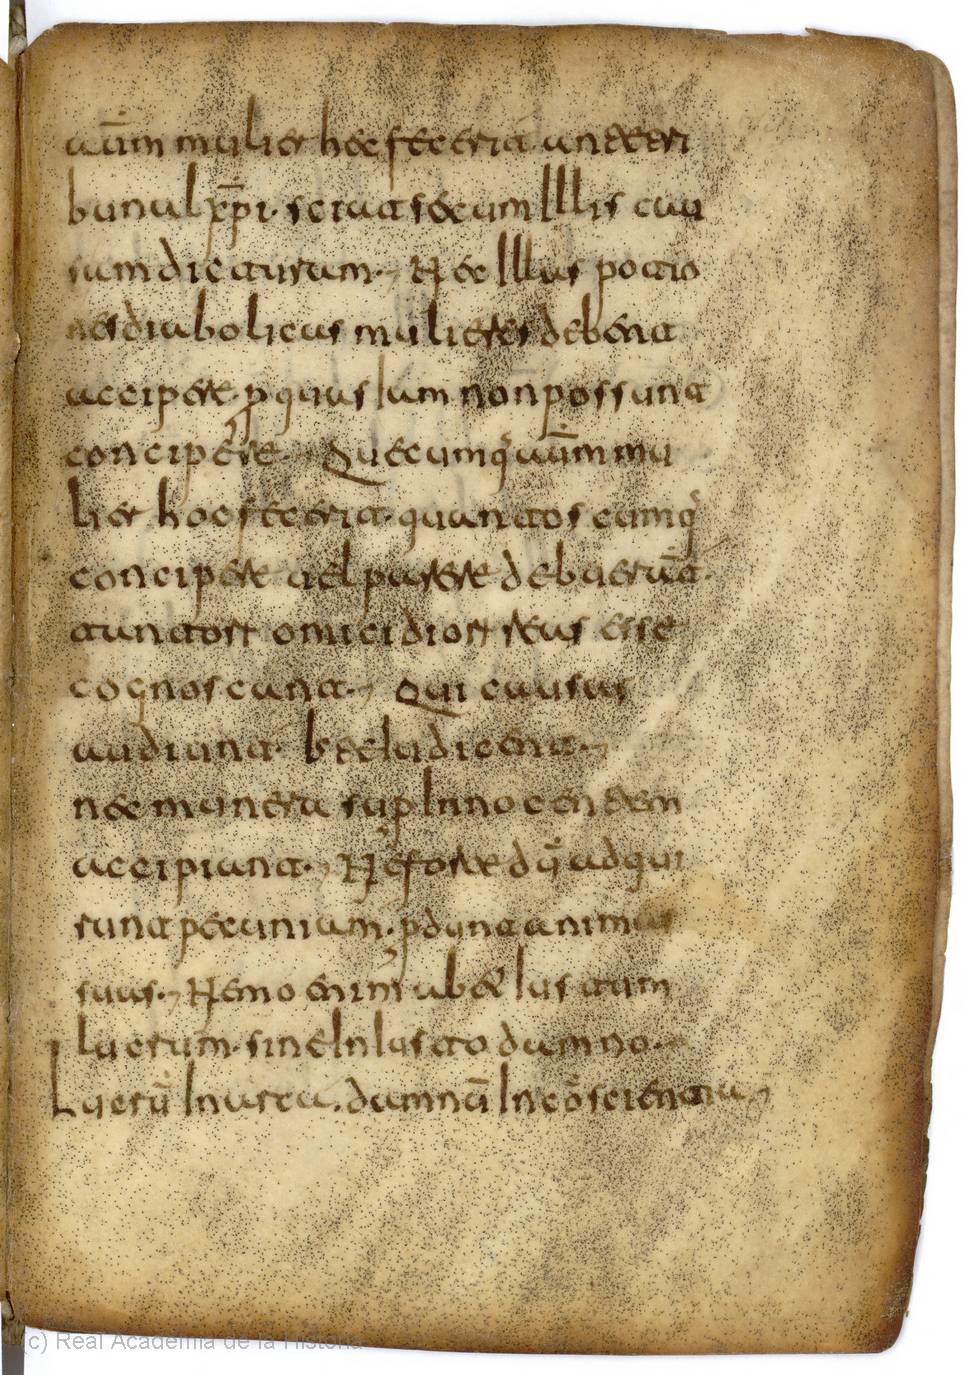 autem mulier hec fecerit ante tri
bunal xpi. sciat se causam illis cau
sam dicturam. Nec illas potio
nes diabolicas mulieres debent
accipere. per quas iam non possunt
concipere. Quecumque autem mu
lier hoc fecerit. quantoscumque
concipere uel parere debuerat.
tantorum omicidiorum reas esse
cognoscant. Qui causas
audiunt. bel iudicent.
nec munera super Innocentem
accipiant. Ne forte dum adqui
runt pecuniam. perdunt animas
suas. Nemo enim abet iustum
lucrum. sine Iniusto damno.
Lucrum In arca. damnum In conscientia
(c) Real Academia de la Historia